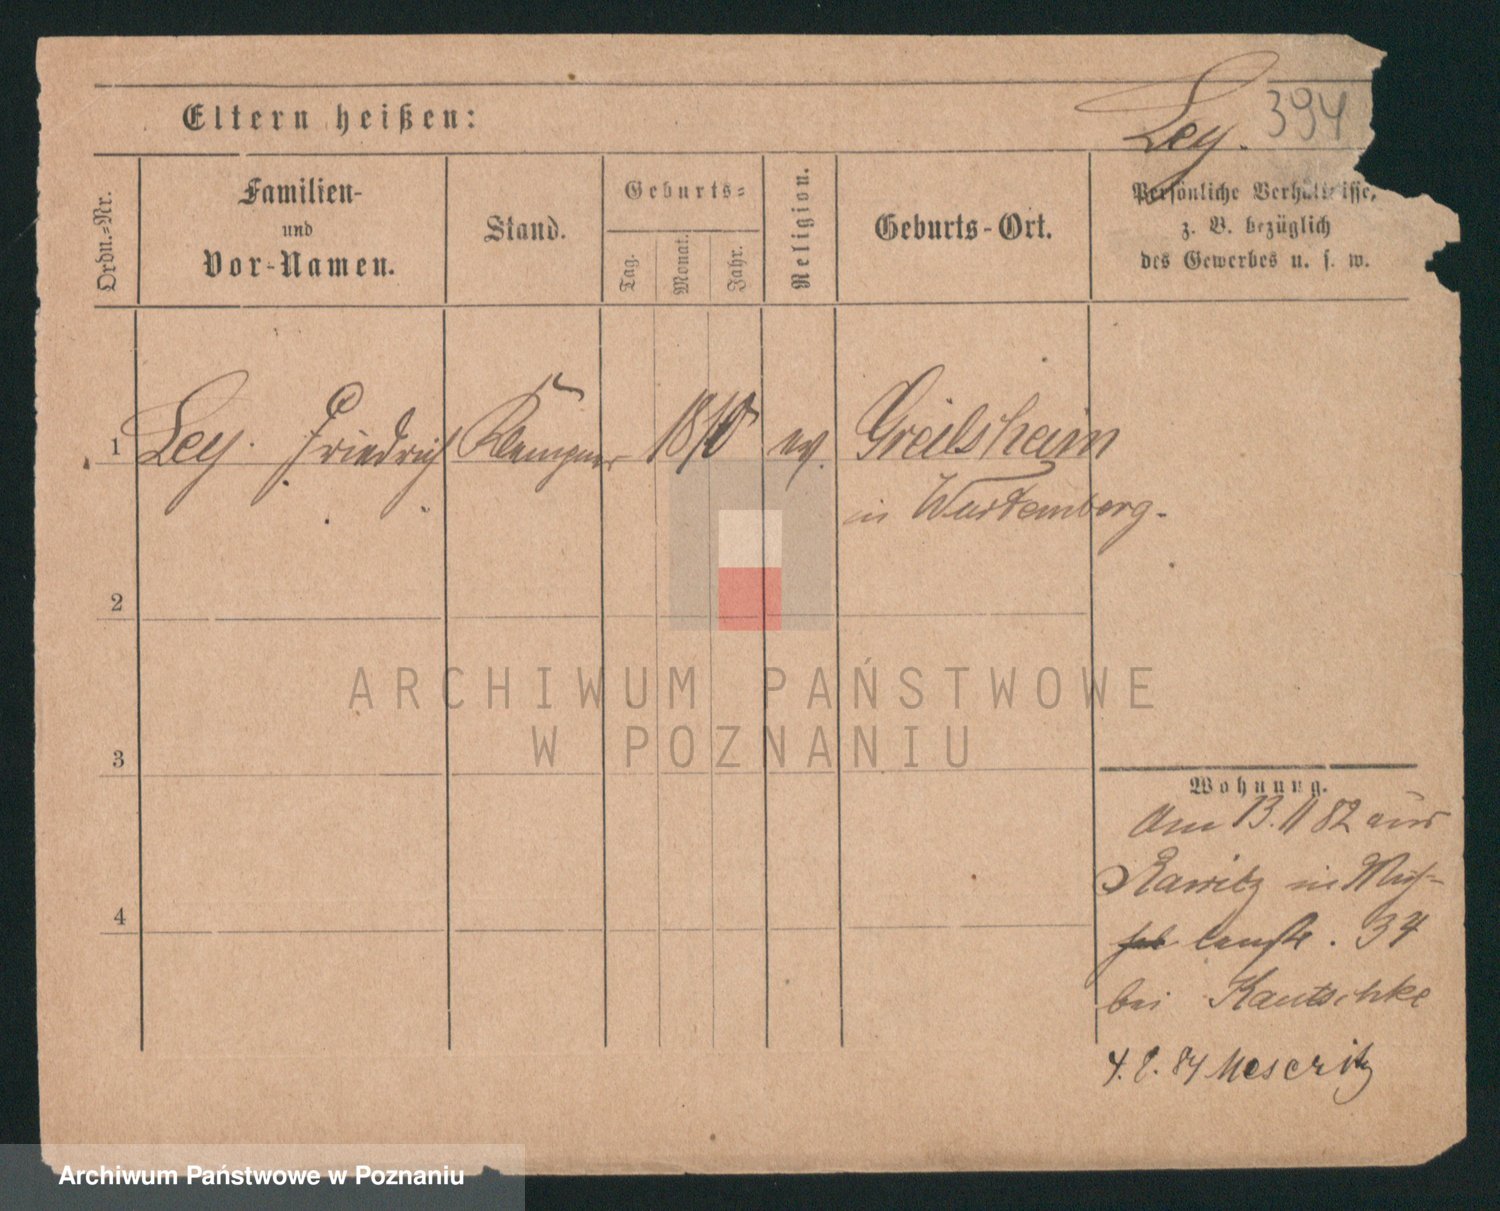 Eltern heißen:
Ley. 394
Ordn.-Nr.
Familien-
und
Vor-Namen.
Stand.
Geburts-
Tag.
Monat.
Jahr.
Religion.
Geburts-Ort.
Persönliche Verhältnisse,
z. B. bezüglich
des Gewerbes u. s. w.
1 Ley. Friedrich Klempner ev. Greilsheim
in Wurtemberg.
2
3
4
ARCHIWUM PAŃSTWOWE
W POZNANIU
Wohnung.
Am 13. 11 82 aus
Rawitz in
34
bei Kantschke
84 Meseritz
Archiwum Państwowe w Poznaniu